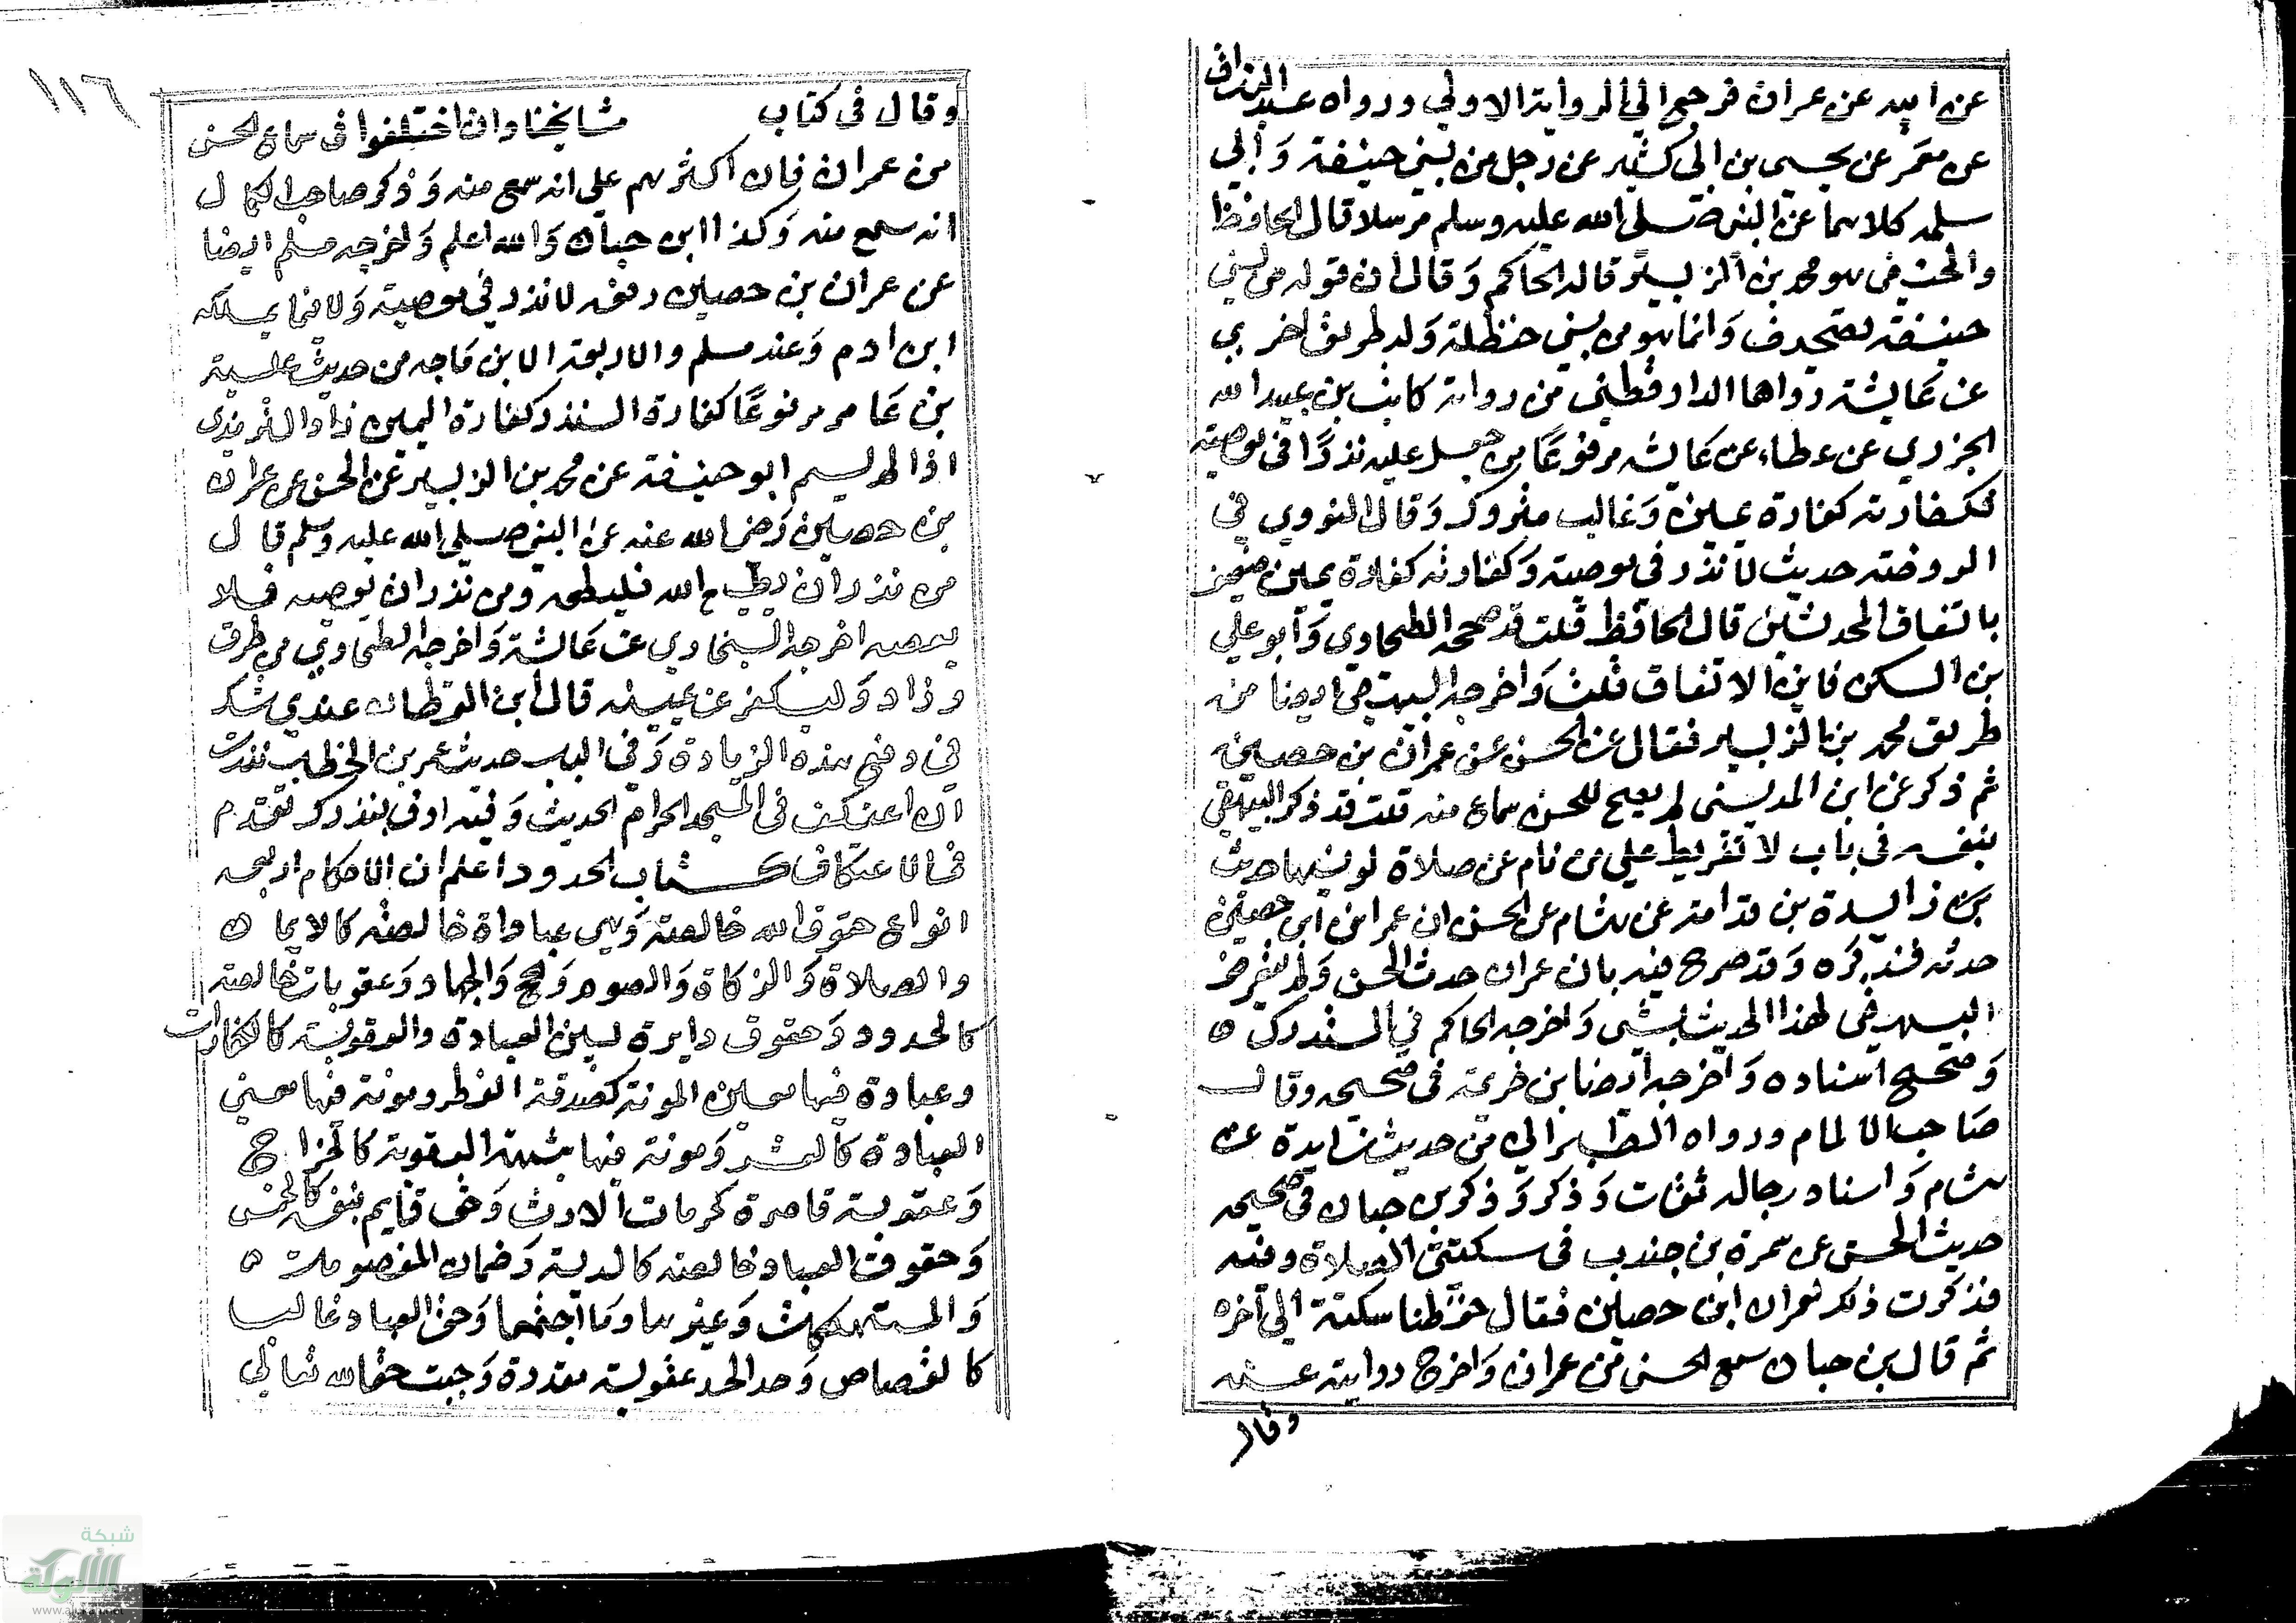 عن ابيه عن عمران فرجع الى الرواية الاولى ورواه عبد الرزاق
عن معمر عن يحيى بن ابى كثير عن رجل من بني حنيفة وَأبي
سلمه كلاهما عن النبى صلى الله عليه وسلم مرسلا قال الحافظ
والحنيفى هو محمد بن الزبير قاله الحاكم وَقال ان قوله من بني
حنيفة تصحيف وَانما هو من بني حنظلة وَله طريق اخرى
عن عَايشة رواها الدارقطني من رواية غالب بن عبيد الله
الجزري عن عطاء عن عَايشه مرفوعًا من جعل عليه نذرًا فى معصية
فكفارته كفارة يمين وَغالب متروك وَقال النووي في
الروضة حديث لا نذر في معصية وَكفارته كفارة يمين ضعيف
باتفاق المحدثين قال الحافظ قلت قد صححه الطحاوى وَأبو علي
بن السكن فاين الاتفاق قلت وَاخرجه البيهقى ايضا من
طريق محمد بن الزبير فقال عن الحسن عن عمران بن حصين
ثم ذكر عن ابن المديني لم يصح للحسن سماع منه قلت قد ذكر البيهقي
بنفسه فى باب لا تفريط على من نام عن صلاة او نسيها حديث
بن زايدة بن قدامة عن هشام عن الحسن ان عمران ابن حصين
حدثه فذكره وَقد صرح فيه بان عمران حدث الحسن وَلم يتعرض
البيهقى لهذا الحديث بشي وَاخرجه الحاكم في المستدرك ٥
وَصحح اسناده وَاخرجه ايضا بن خزيمة فى صحيحه وقال
صَاحب الالمام ورواه الطبراني من حديث زايدة عن
هشام وَاسناد رجاله ثقات وَذكر وَذكر بن حبان في صحيحه
حديث الحسن عن سمرة بن جندب فى سكتتى الصلاة وفيه
فذكرت ذلك لعمران ابن حصين فقال حفظنا سكتة الى آخره
ثم قال بن حبان سمع الحسن من عمران وَاخرج روايته عنه
وقال
١١٦
وقال فى كتاب مشايخنا وان اختلفوا فى سماع الحسن
من عمران فان اكثرهم على انه سمع منه وَذكر صاحب الكمال
انه سمع منه وَكذا ابن حبان وَالله اعلم وَاخرجه مسلم ايضا
عن عمران بن حصين رفعه لا نذر في معصية وَلا فيما يملكه
ابن ادم وَعند مسلم والاربعة الا ابن مَاجه من حديث عقبة
بن عَامر مرفوعًا كفارة النذر كفارة اليمين زاد الترمذى
اذا لم يسم ابو حنيفة عن محمد بن الزبير عن الحسن عن عمران
بن حصين رَضى الله عنه عن النبى صلى الله عليه وسلم قال
من نذر ان يطيع الله فليطعه ومن نذر ان يعصيه فلا
يعصه اخرجه البخاري عن عَائشة وَاخرجه الطحاوي من طرق
وزاد وَليكفر عن يمينه قال ابن القطان عندي شك
في رفع هذه الزيادة وَفى الباب حديث عمر بن الخطاب نذرت
ان اعتكف فى المسجد الحرام الحديث وَفيه اوف بنذرك تقدم
فى الاعتكاف كتاب الحدود اعلم ان الاحكام اربعه
انواع حقوق الله خالصة وَهي عباداة خالصة كالايمان
والصلاة وَالزكاة وَالصوم وَالحج وَالجهاد وَعقوبات خالصة
كالحدود وَحقوق دايرة بين العبادة والعقوبة كالكفارات
وعبادة فيها معنى المونة كصدقة الفطر ومونة فيها معنى
العبادة كالعشر وَمونة فيها شبهة العقوبة كالخراج
وَعقوبة قاصرة كحرمان الارث وَحق قايم بنفسه كالخمس
وَحقوق العباد خالصة كالدية وَضمان المغصومات ٥
وَالمستهلكات وَغيرها وَما اجتمعا وَحق العباد غالب
كالقصاص وَحد الحد عقوبة مقدرة وَجبت حقا لله تعالى
شبكة
الألوكة
www.alukah.net